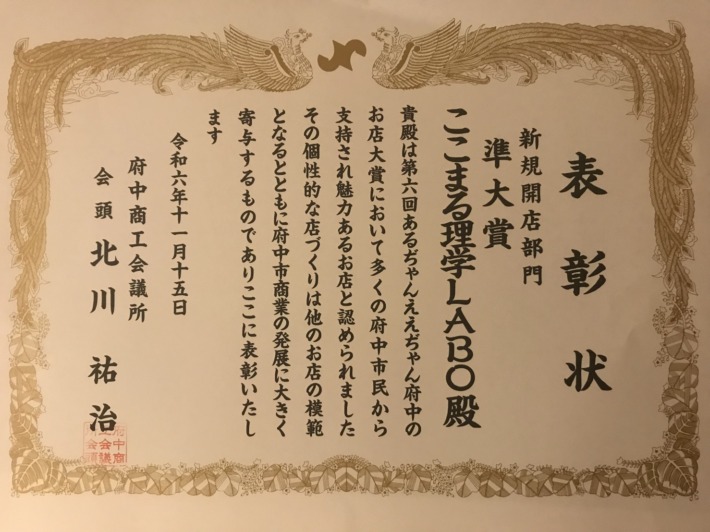 表彰状
新規開店部門
準大賞
ここまる理学LABO殿
貴殿は第六回あるぢゃんええぢゃん府中の
お店大賞において多くの府中市民から
支持され魅力あるお店と認められました
その個性的な店づくりは他のお店の模範
となるとともに府中市商業の発展に大きく
寄与するものでありここに表彰いたし
ます
令和六年十一月十五日
府中商工会議所
会頭 北川祐治
府中商
工会議
所会頭